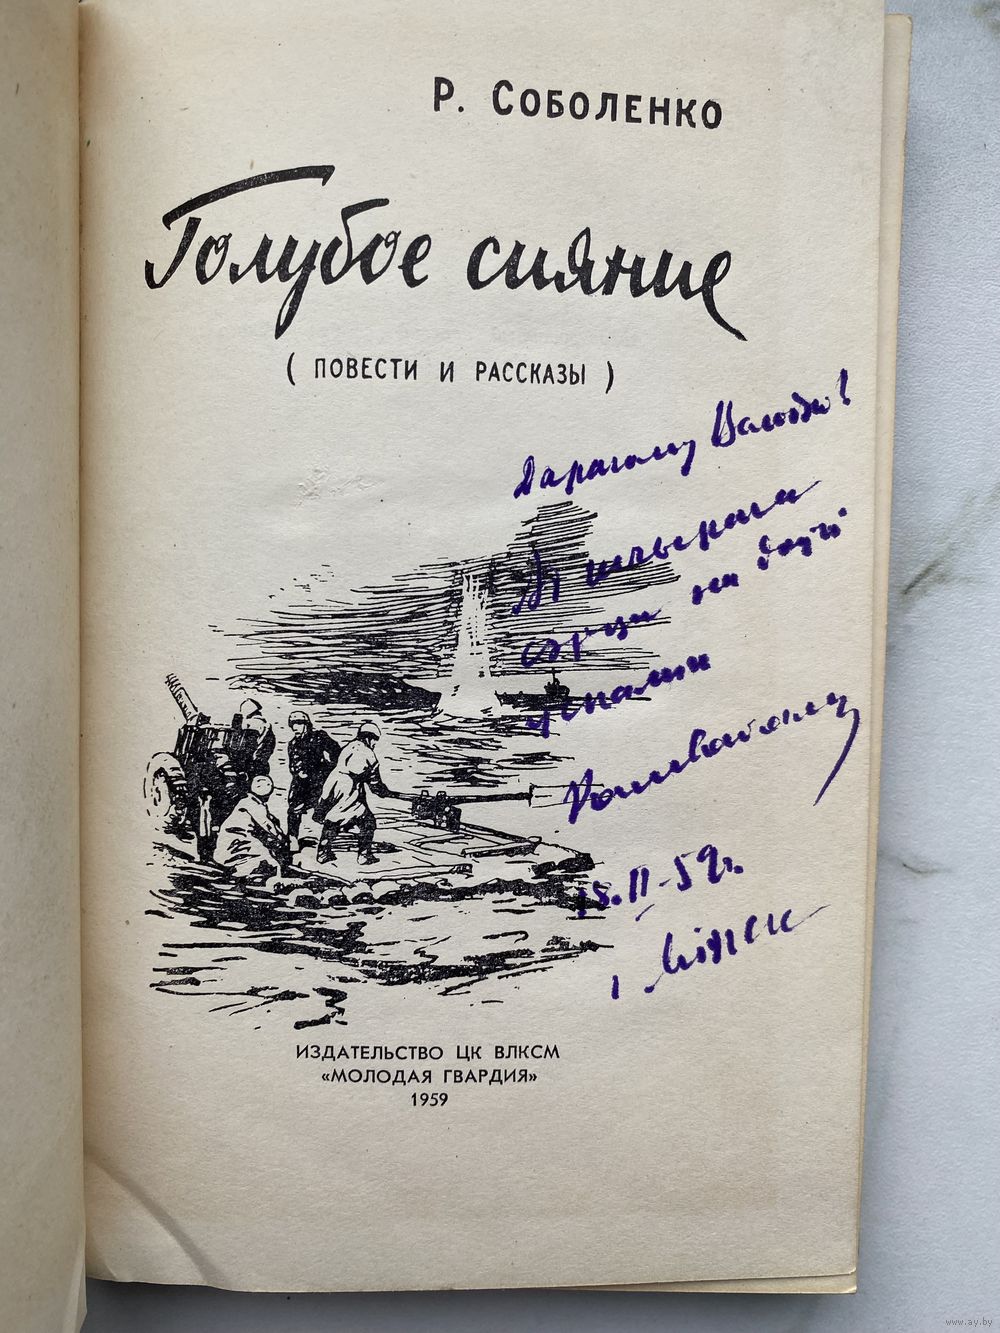 Р. СОБОЛЕНКО
Голубое сияние
( ПОВЕСТИ И РАССКАЗЫ )
Дарагому Валодзю!
Ад шчырага
сэрца на доўгі
успамін
15.II-59 г.
г. Мінск
ИЗДАТЕЛЬСТВО ЦК ВЛКСМ
«МОЛОДАЯ ГВАРДИЯ»
1959
www.ay.by